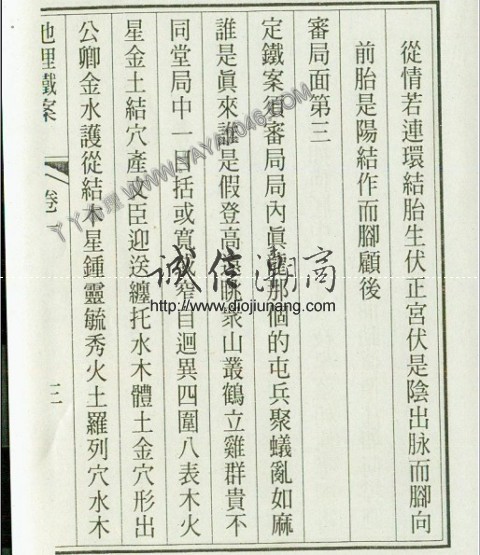 從情若連環結胎生伏正宮伏是陰出脉而腳向
前胎是陽結作而腳顧後
審局面第三
定鐵案須審局局內眞那個的屯兵聚蟻亂如麻
誰是眞來誰是假登高眺衆山叢鶴立雞群貴不
同堂局中一目括或寬窄自迴異四圍八表木火
星金土結穴產文臣迎送纏托水木體土金穴形出
公卿金水護從結木星鍾靈毓秀火土羅列穴水木
地理鐵案 卷 三
誠信潮商
http://www.diojiunang.com